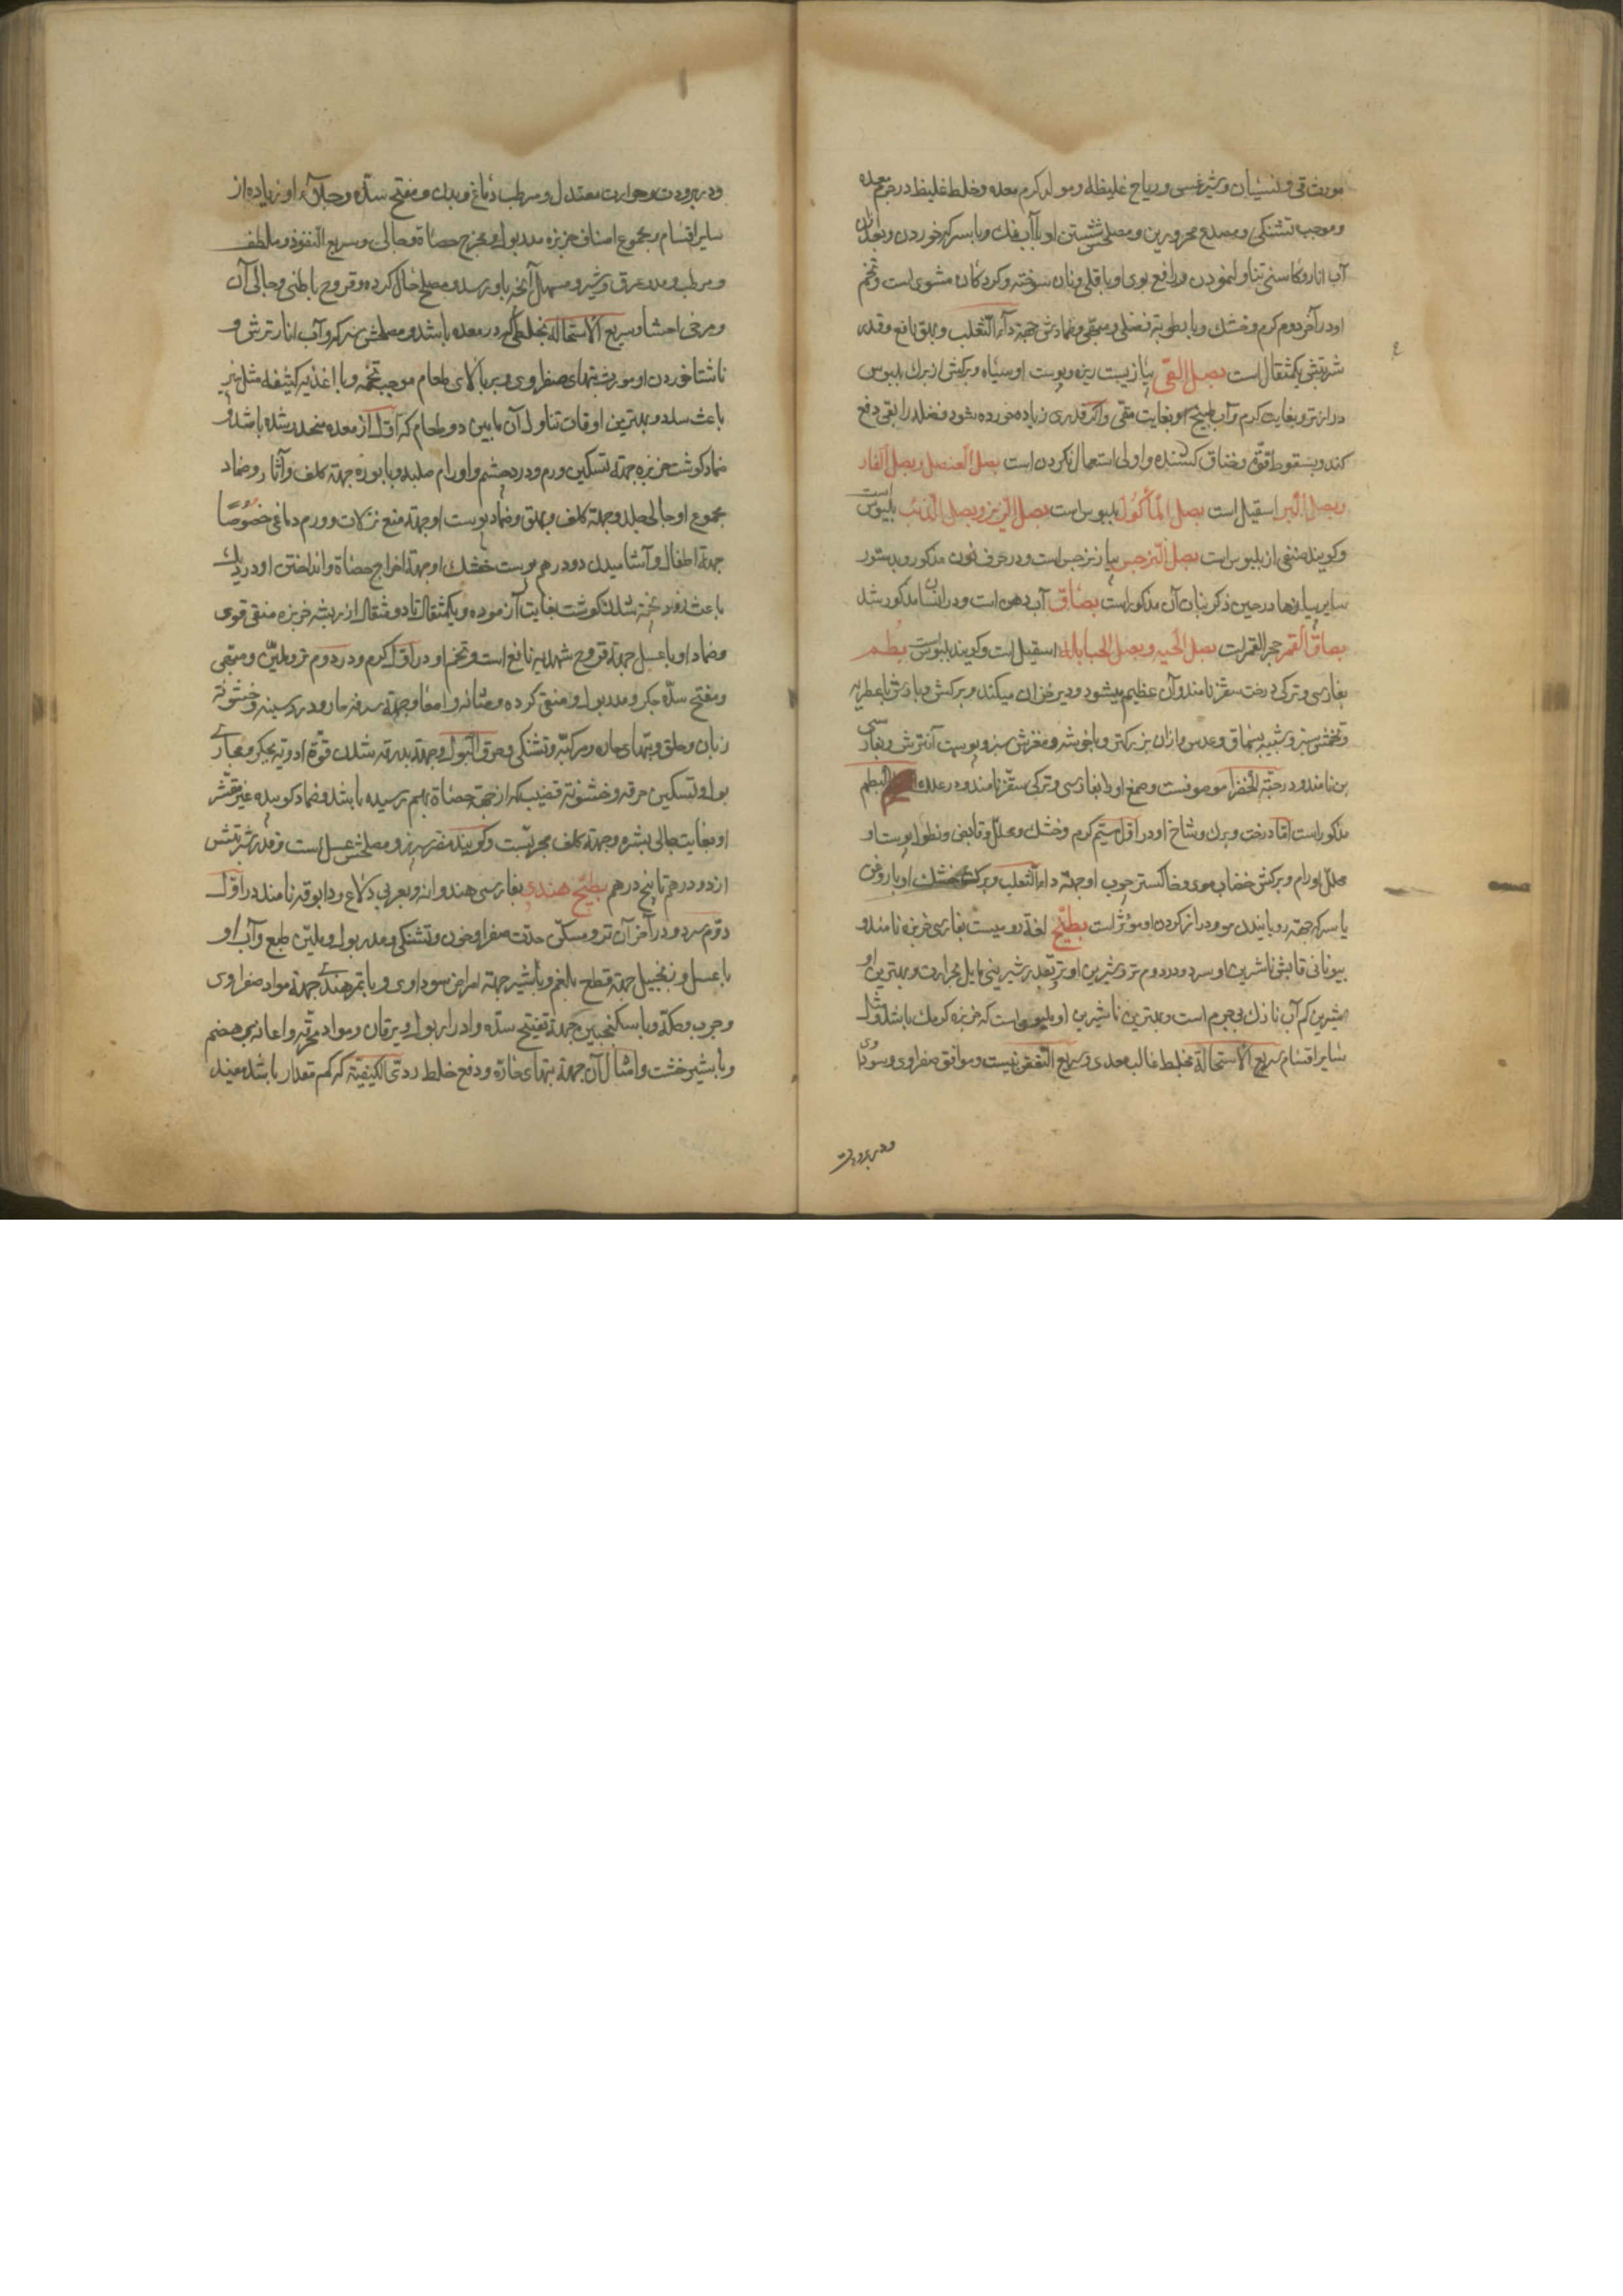 مورث قی و نسیان و شیرغسی و ریاح غلیظه و مولد کرم معده و خلط غلیظ در جرم معده
و موجب تشنکی و مصدع محرورین و مصلحش شستن او با آب نمک و با سرکه خوردن و بعد از آن
آب انار و کاسنی تناول نمودن و رافع بوی او باقلی و نان سوخته و کردکان مشوی است و تخم
او در آخر دوم کرم و خشک و با رطوبة فضلی و مبهی و ضمادش جهة داء الثعلب و بهق نافع و قدر
شربتش یکمثقال است بصل القی پیازیست ریزه و پوست او سیاه و برکش از برک بلبوس
درازتر و بغایت کرم و آب طبیخ او بغایت مقی و اکر قدری زیاده خورده شود فضله را بقی دفع
کند و بسقوط قوّة و خناق کشنده و اولی استعمال نکردن است بصل العنصل و بصل الفار
و بصل البر اسقیل است بصل المأکول بلبوس است بصل الزیز و بصل الذئب بلبوس است
و کویند صنفی از بلبوس است بصل النرجس پیاز نرجس است و در حرف نون مذکور و بدستور
سایر پیازها در حین ذکر نبات آن مذکور است بصاق آب دهن است و در انسان مذکور شد
بصاق القمر حجر القمر است بصل الحیه و بصل الحبابله اسقیل است و کویند بلبوس است بطم
بفارسی و ترکی درخت سقز نامند و آن عظیم میشود و دیر خزان میکند و برکش و بارش با عطریه
و تخمش سبز و شبیه بسماق و عدس و از آن بزرکتر و با خوشه و مغزش سبز و پوست آن ترش و بفارسی
بن نامند و در حبّة الخضرا موصوفست و صمغ او را بفارسی و ترکی سقز نامند و در علک البطم
مذکور است امّا درخت و برک و شاخ او در اوّل سیّم کرم و خشک و محلّل و قابض و نطول پوست او
محلل اورام و برکش خضاب موی و خاکستر چوب او جهة داء الثعلب و برک خشک او با روغن
یا سرکه جهة رویانیدن مو و دراز کردن او مؤثر است بطیّخ لغة رومیست بفارسی خربزه نامند و
بیونانی قابش ناشرین او سرد و در دوم تر و شیرین او تر بقدر شیرینی مایل بحرارت و بهترین او
شیرین کم آب نازک بی جرم است و بهترین ناشیرین او است که خربزه کرمک باشد و مثل
سایر اقسام سریع الاستحالة بخلط غالب معدی و سریع التعفن نیست و موافق صفراوی و سوداوی
و در برودت
و در برودت و حرارت معتدل و مرطب دماغ و بدن و مفتح سدّه و جلاء او زیاده از
سایر اقسام و مجموع اصناف خربزه مدر بول و مخرج حصاة و جالی و سریع النفوذ و ملطف
و مرطب و مدر عرق و شیر و مسهل آنچه باو رسد و مصلح حال کرده و قروح باطنی و جالی آن
و مرخی احشا و سریع الاستحالة بخلطی که در معده باشد و مصلحش سرکه و آب انار ترش و
ناشتا خوردن او مورث تبهای صفراوی و بر بالای طعام موجب تخمه و با اغذیه کثیفه مثل پنیر
باعث سدد و بهترین اوقات تناول آن مابین دو طعام که اوّل از معده منحدر شده باشد و
ضماد کوشت خربزه جهة تسکین ورم و درد چشم و اورام صلبه و با بوره جهة کلف و آثار و ضماد
مجموع او جالی جلد و جهة کلف و بهق و ضماد پوست او جهة منع نزلات و ورم دماغی خصوصا
جهة اطفال و آشامیدن دو درهم پوست خشک او جهة اخراج حصاة و انداختن او در دیک
باعث زود پخته شدن کوشت بغایت آزموده و یکمثقال تا دو مثقال از ریشه خربزه منقی قوی
و ضماد او با عسل جهة قروح شهدیه نافع است و تخم او در اوّل کرم و در دوم تر و ملیّن و مبهی
و مفتح سدّه جکر و مدر بول و منقی کرده و مثانه و امعا و جهة سرفه حار و درد سینه و خشونة
زبان و حلق و تبهای حاره مرکبة و تشنکی و حرق البول و جهة بدرقه شدن قوّة ادویه بجکر و مجاری
بول و تسکین حرقه و خشونة قضیب که از جهة حصاة بهم رسیده باشد و ضماد کوبیده غیر مقشر
او بغایت جالی بشره و جهة کلف مجرّبست و کویند مضر سپرز و مصلحش عسل است و قدر شربتش
از دو درهم تا پنج درهم بطیّخ هندی بفارسی هندوانه و بعربی دلاع و دابوقه نامند در اوّل
دوّم سرد و در آخر آن تر و مسکن حدّت صفرا و خون و تشنکی و مدر بول و ملیّن طبع و آب او
با عسل و زنجبیل جهة قطع بلغم و با شیر جهة امراض سوداوی و با تمر هندی جهة مواد صفراوی
و جرب و حکة و با سکنجبین جهة تفتیح سدّه و ادرار بول و یرقان و مواد محرقه و اعانه بهضم
و با شیرخشت و امثال آن جهة تبهای حارّه و دفع خلط ردی الکیفیة که کم مقدار باشد مفید